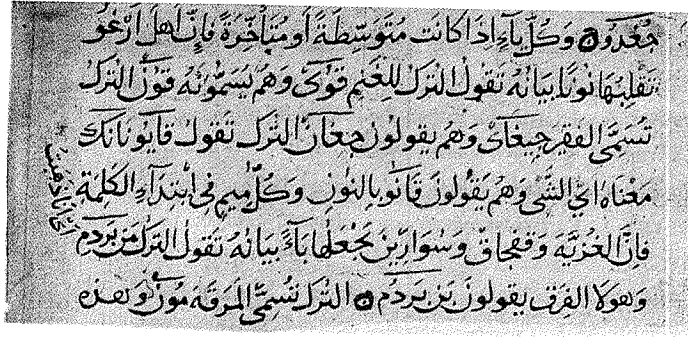 جغدو وكل ياء اذا كانت متوسطة او متأخرة فإن اهل ارغو
تقلبها نونا بيانه تقول الترك للغنم قوى وهم يسمونه قون الترك
تسمى الفقير جيغاى وهم يقولون جغان الترك تقول قايو نانك
معناه اي الشى وهم يقولون قانو بالنون وكل ميم في ابتداء الكلمة
فإن الغزية وقفجاق وسوارين تجعلها باء بيانه تقول الترك من بردم
وهولا الفرق يقولون بن بردم الترك تسمى المرقة مون وهذه